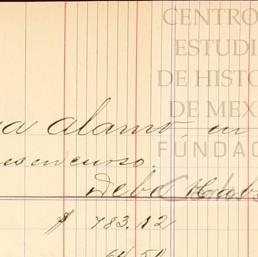 CENTRO
ESTUDI
DE HISTO
DE MEX
FUNDAC
a alamo, en
es en curso.
Debe Habe
$ 783.12